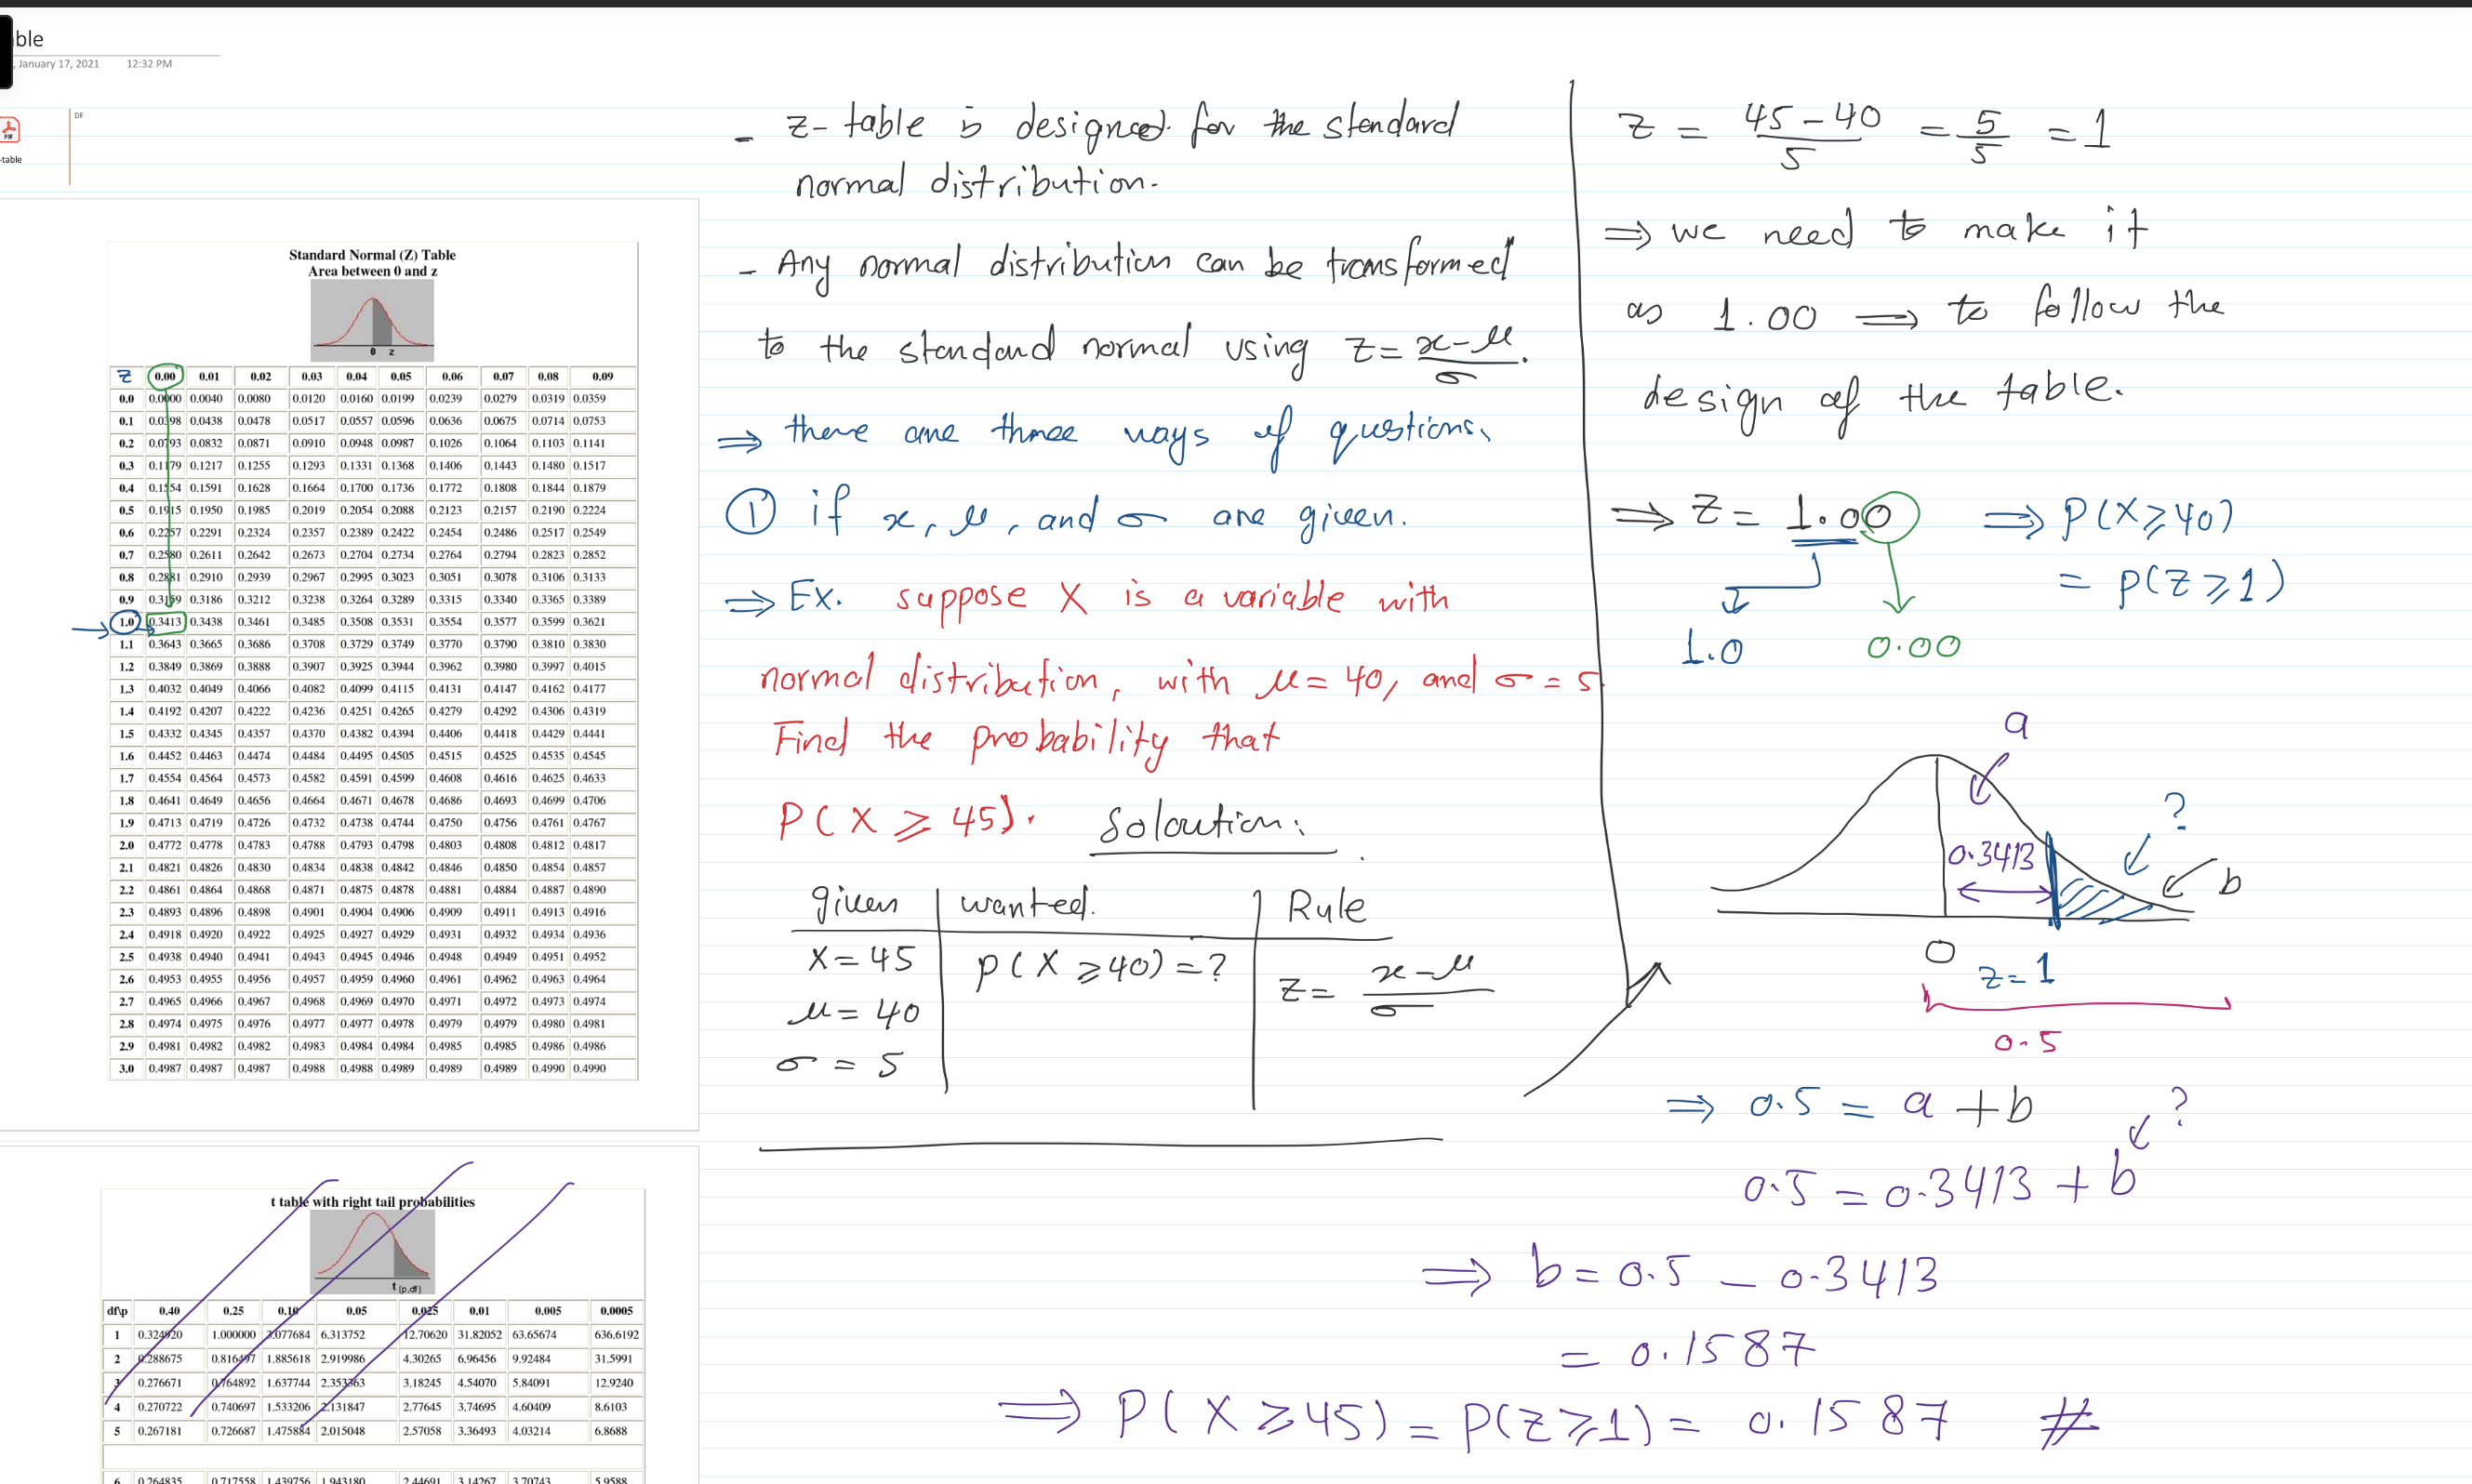 ble
, January 17, 2021 12:32 PM
DF
PDF
-table
Standard Normal (Z) Table
Area between 0 and z
0 z
Z 0.00 0.01 0.02 0.03 0.04 0.05 0.06 0.07 0.08 0.09
0.0 0.0000 0.0040 0.0080 0.0120 0.0160 0.0199 0.0239 0.0279 0.0319 0.0359
0.1 0.0398 0.0438 0.0478 0.0517 0.0557 0.0596 0.0636 0.0675 0.0714 0.0753
0.2 0.0793 0.0832 0.0871 0.0910 0.0948 0.0987 0.1026 0.1064 0.1103 0.1141
0.3 0.1179 0.1217 0.1255 0.1293 0.1331 0.1368 0.1406 0.1443 0.1480 0.1517
0.4 0.1554 0.1591 0.1628 0.1664 0.1700 0.1736 0.1772 0.1808 0.1844 0.1879
0.5 0.1915 0.1950 0.1985 0.2019 0.2054 0.2088 0.2123 0.2157 0.2190 0.2224
0.6 0.2257 0.2291 0.2324 0.2357 0.2389 0.2422 0.2454 0.2486 0.2517 0.2549
0.7 0.2580 0.2611 0.2642 0.2673 0.2704 0.2734 0.2764 0.2794 0.2823 0.2852
0.8 0.2881 0.2910 0.2939 0.2967 0.2995 0.3023 0.3051 0.3078 0.3106 0.3133
0.9 0.3159 0.3186 0.3212 0.3238 0.3264 0.3289 0.3315 0.3340 0.3365 0.3389
1.0 0.3413 0.3438 0.3461 0.3485 0.3508 0.3531 0.3554 0.3577 0.3599 0.3621
1.1 0.3643 0.3665 0.3686 0.3708 0.3729 0.3749 0.3770 0.3790 0.3810 0.3830
1.2 0.3849 0.3869 0.3888 0.3907 0.3925 0.3944 0.3962 0.3980 0.3997 0.4015
1.3 0.4032 0.4049 0.4066 0.4082 0.4099 0.4115 0.4131 0.4147 0.4162 0.4177
1.4 0.4192 0.4207 0.4222 0.4236 0.4251 0.4265 0.4279 0.4292 0.4306 0.4319
1.5 0.4332 0.4345 0.4357 0.4370 0.4382 0.4394 0.4406 0.4418 0.4429 0.4441
1.6 0.4452 0.4463 0.4474 0.4484 0.4495 0.4505 0.4515 0.4525 0.4535 0.4545
1.7 0.4554 0.4564 0.4573 0.4582 0.4591 0.4599 0.4608 0.4616 0.4625 0.4633
1.8 0.4641 0.4649 0.4656 0.4664 0.4671 0.4678 0.4686 0.4693 0.4699 0.4706
1.9 0.4713 0.4719 0.4726 0.4732 0.4738 0.4744 0.4750 0.4756 0.4761 0.4767
2.0 0.4772 0.4778 0.4783 0.4788 0.4793 0.4798 0.4803 0.4808 0.4812 0.4817
2.1 0.4821 0.4826 0.4830 0.4834 0.4838 0.4842 0.4846 0.4850 0.4854 0.4857
2.2 0.4861 0.4864 0.4868 0.4871 0.4875 0.4878 0.4881 0.4884 0.4887 0.4890
2.3 0.4893 0.4896 0.4898 0.4901 0.4904 0.4906 0.4909 0.4911 0.4913 0.4916
2.4 0.4918 0.4920 0.4922 0.4925 0.4927 0.4929 0.4931 0.4932 0.4934 0.4936
2.5 0.4938 0.4940 0.4941 0.4943 0.4945 0.4946 0.4948 0.4949 0.4951 0.4952
2.6 0.4953 0.4955 0.4956 0.4957 0.4959 0.4960 0.4961 0.4962 0.4963 0.4964
2.7 0.4965 0.4966 0.4967 0.4968 0.4969 0.4970 0.4971 0.4972 0.4973 0.4974
2.8 0.4974 0.4975 0.4976 0.4977 0.4977 0.4978 0.4979 0.4979 0.4980 0.4981
2.9 0.4981 0.4982 0.4982 0.4983 0.4984 0.4984 0.4985 0.4985 0.4986 0.4986
3.0 0.4987 0.4987 0.4987 0.4988 0.4988 0.4989 0.4989 0.4989 0.4990 0.4990
t table with right tail probabilities
t (p,df)
df\p 0.40 0.25 0.10 0.05 0.025 0.01 0.005 0.0005
1 0.324920 1.000000 3.077684 6.313752 12.70620 31.82052 63.65674 636.6192
2 0.288675 0.816497 1.885618 2.919986 4.30265 6.96456 9.92484 31.5991
3 0.276671 0.764892 1.637744 2.353363 3.18245 4.54070 5.84091 12.9240
4 0.270722 0.740697 1.533206 2.131847 2.77645 3.74695 4.60409 8.6103
5 0.267181 0.726687 1.475884 2.015048 2.57058 3.36493 4.03214 6.8688
6 0.264835 0.717558 1.439756 1.943180 2.44691 3.14267 3.70743 5.9588
- z-table is designed for the standard
normal distribution.
- Any normal distribution can be transformed
to the standard normal using z = x-μ / σ.
⇒ there are three ways of questions.
① if x, μ, and σ are given.
⇒ Ex. suppose X is a variable with
normal distribution, with μ = 40, and σ = 5
Find the probability that
P(X ⩾ 45). Soloution:
given wanted. Rule
X = 45 P(X ⩾ 40) = ? z = x-μ / σ
μ = 40
σ = 5
z = 45-40 / 5 = 5/5 = 1
⇒ we need to make it
as 1.00 ⇒ to follow the
design of the table.
⇒ Z = 1.00 ⇒ P(X ⩾ 40)
= P(Z ⩾ 1)
1.0 0.00
a
?
0.3413 b
0
z = 1
0.5
⇒ 0.5 = a + b
?
0.5 = 0.3413 + b
⇒ b = 0.5 - 0.3413
= 0.1587
⇒ P(X ⩾ 45) = P(Z ⩾ 1) = 0.1587 #